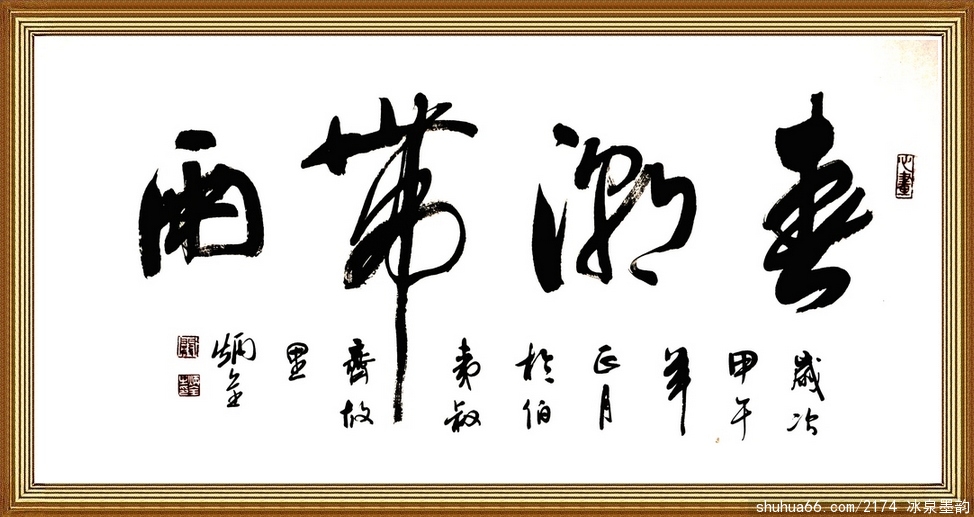 春潮带雨
歲次
甲午
年
正月
於伯
夷叔
齊故
里
炳全
心畫
shuhua66.com/2174 冰泉墨韵